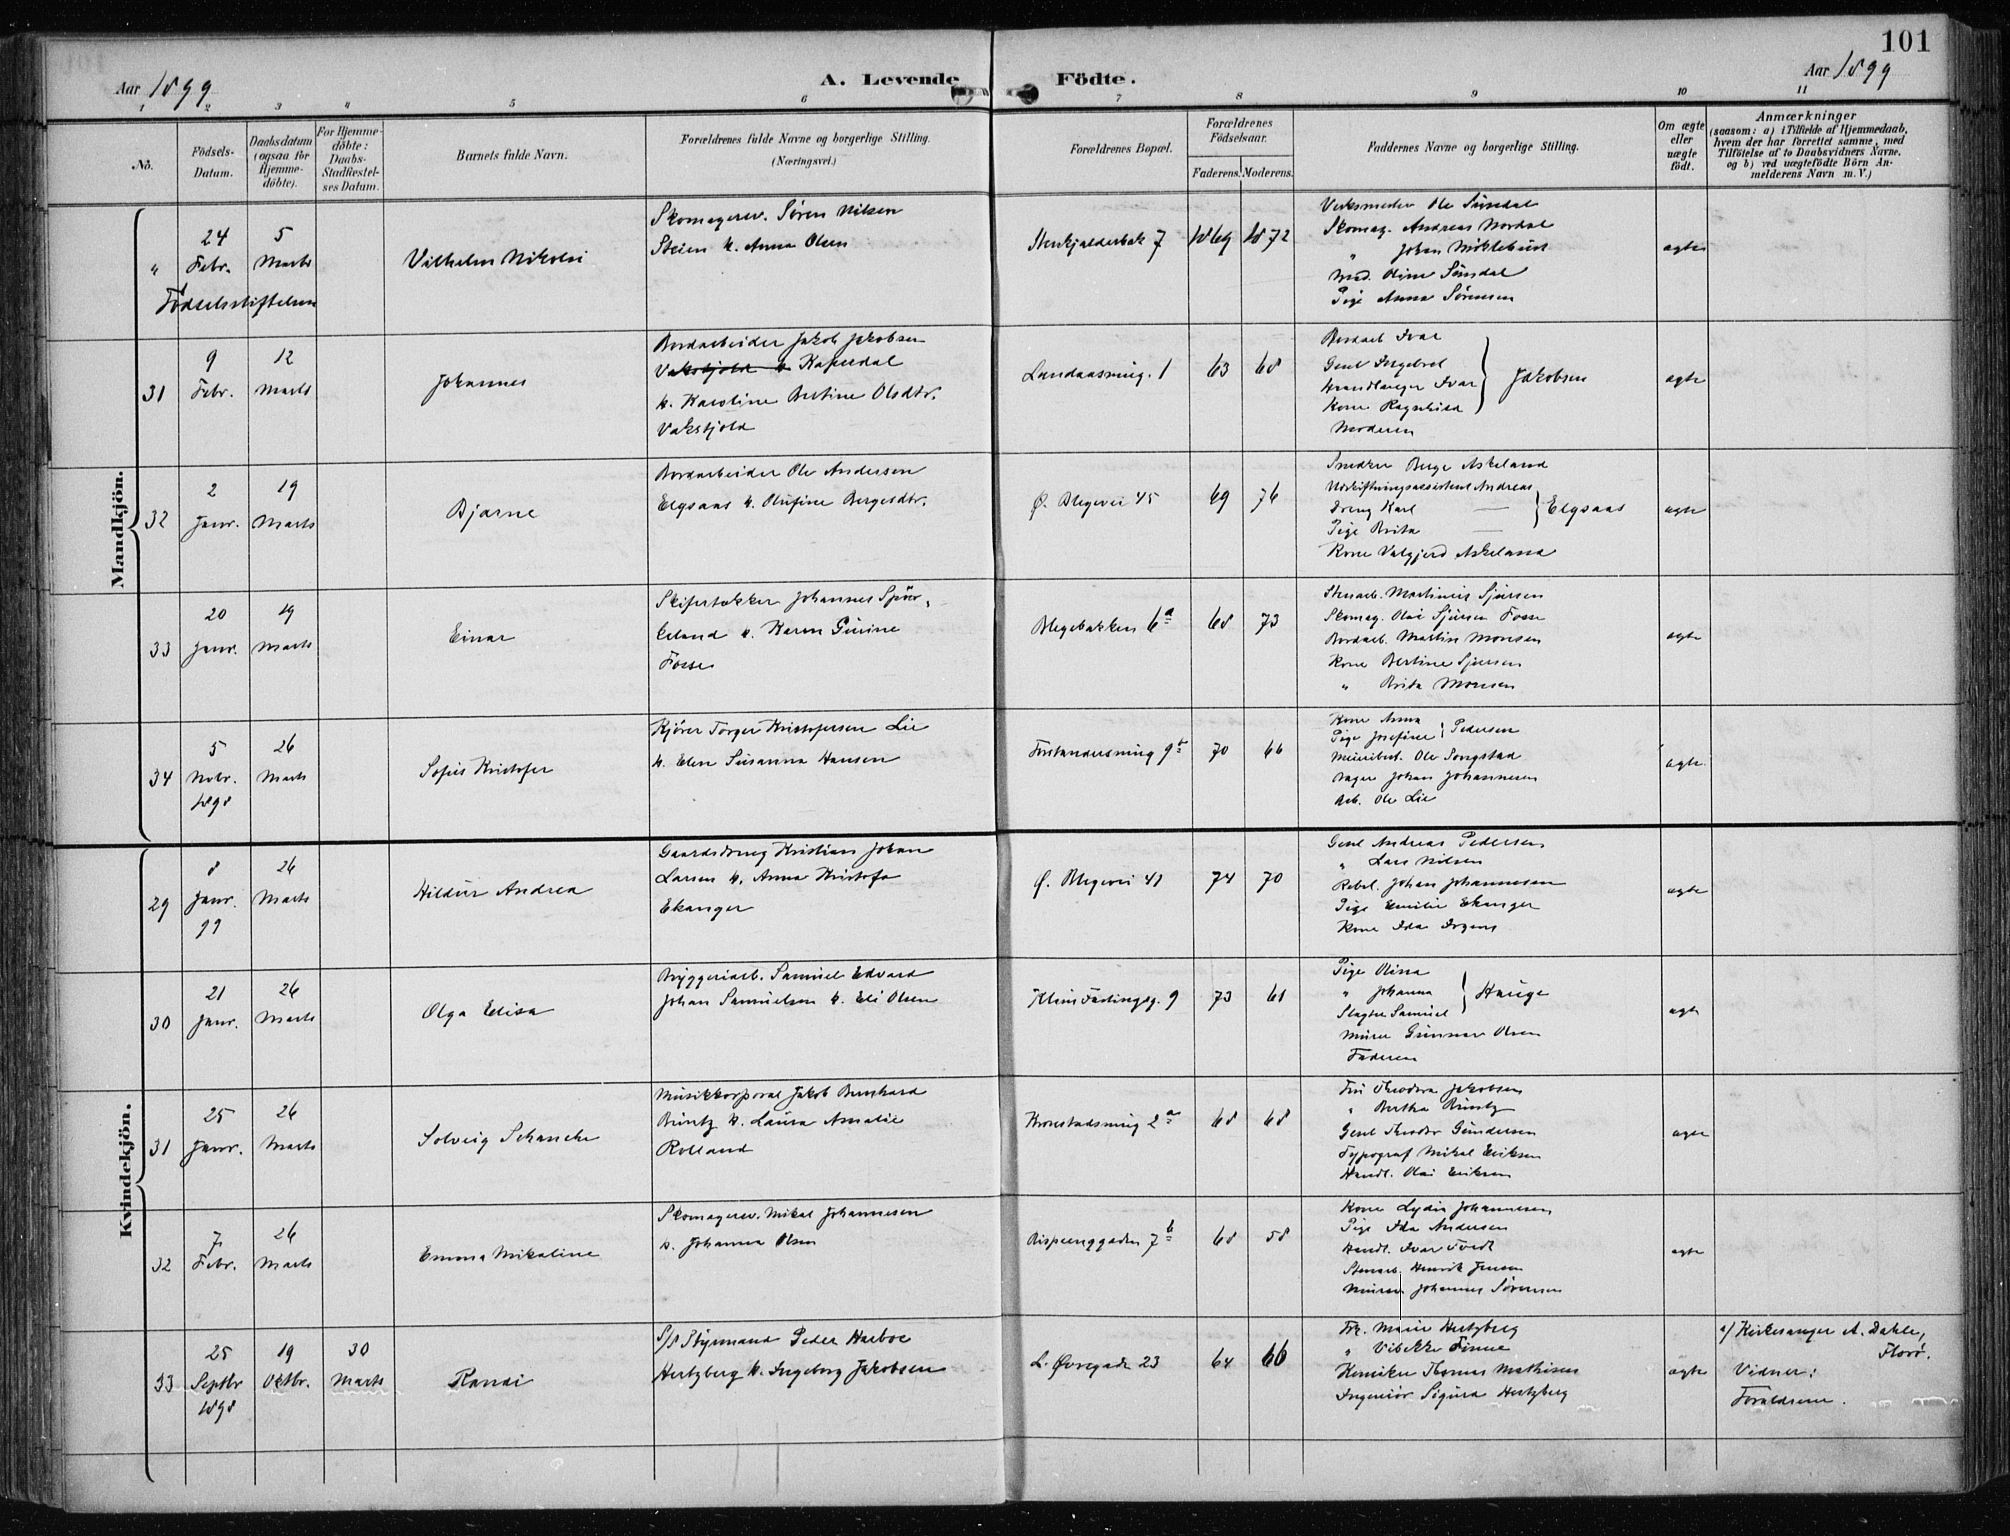 101
Aar 1899
A. Levende Födte.
Aar 1899
1 2 3 4 5 6 7 8 9 10 11
No.
Födsels-Datum.
Daabsdatum (ogsaa for Hjemmedöbte).
For Hjemmedöbte: Daabs-Stadfæstelses Datum.
Barnets fulde Navn.
Forældrenes fulde Navne og borgerlige Stilling.
(Næringsvei.)
Forældrenes Bopæl.
Forældrenes Födselsaar.
Faderens. Moderens.
Faddernes Navne og borgerlige Stilling.
Om ægte eller uægte födt.
Anmærkninger
(saasom: a) i Tilfælde af Hjemmedaab, hvem der har forrettet samme, med Tilföielse af to Daabsvidners Navne, og b) ved uægtefödte Börn Anmelderens Navn m. V.)
Mandkjön.
" 24 Febr. 5 Marts
Födselsstiftelsen
Vilhelm Nikolai
Skomagersv. Sören Nilsen
Steien h. Anna Olsen
Stenkjelderbak 7
1869 1872
Verksmester Ole Sunsdal
Skomag. Andreas Nordal
" Johan Mikлebust
Mad. Oline Sunsdal
Pige Anna Sörensen
ægte
31
9 Febr. 12 Marts
Johannes
Bordarbeider Jakob Jakobsen
Vakskjold h. Kaperdal
h. Karoline Bertine Olsdtr.
Vakskjold
Landaassmug. 1
63 68
Bordarb. Ivar
Gesel Ingebret
Haandlanger Ivar
Kone Ragnhild
Jakobsen
Moderen
ægte
32
2 Janr. 19 Marts
Bjarne
Bordarbeider Ole Andersen
Elgsaas h. Olufine Bergesdtr.
Ö. Blegevei 45
69 76
Snedker Berge Askeland
Udskiftningsassistent Andreas
Dreng Karl
Pige Brita
Elgsaas
Kone Valgjerd Askeland
ægte
33
20 Janr. 19 Marts
Einar
Skifertækker Johannes Spör-
keland h. Karen Gurine
Fosse
Blegebakken 6a
68 73
Stenarb. Martinus Sjursen
Skomag. Olai Sjursen Fosse
Bordarb. Martin Monsen
Kone Bertine Sjursen
" Brita Monsen
ægte
34
5 Novbr. 1898 26 Marts
Sofus Kristofer
Kjörer Torger Kristofersen Lie
h. Elen Susanna Hansen
Forstandersmug 9b
70 66
Kone Anna
Pige Josefine
Pedersen
Meieribest. Ole Songstad
Bager Johan Johannesen
Arb. Ole Lie
ægte
Kvindekjön.
29
8 Janr. 99 26 Marts
Hildur Andrea
Gaardsdreng Kristian Johan
Larsen h. Anna Kristofa
Ekanger
Ö. Blegevei 41
74 70
Gesel Andreas Pedersen
" Lars Nilsen
Johan Johannesen
Pige Emilie Ekanger
Kone Ida Irgens
ægte
30
21 Janr. 26 Marts
Olga Elisa
Bryggeriarb. Samuel Edvard
Johan Samuelsen h. Eli Olsen
Klaus Fastingsg. 9
73 61
Pige Olina
" Johanna
Slagter Samuel
Hauge
Murer Gunnar Olsen
Faderen
ægte
31
25 Janr. 26 Marts
Solveig Schanche
Musikkorporal Jakob Bernhard
Büntz h. Laura Amalie
Rolland
Kronstadsmug 2a
68 68
Fru Theodora Jakobsen
" Bertha Büntz
Gesel Theodor Gundersen
Typograf Mikal Eriksen
Handl. Olai Eriksen
ægte
32
7 Febr. 26 Marts
Emma Mikaline
Skomagersv. Mikal Johannesen
h. Johanna Olsen
Bispeenggaden 7b
68 58
Kone Lydia Johannesen
Pige Ida Andersen
Handl. Ivar Tvedt
Stenarb. Henrik Jensen
Murer Johannes Sörensen
ægte
33
25 Septbr. 1898 19 Oktbr. 30 Marts
Randi
S/s Styrmand Peder Harboe
Hertzberg h. Ingeborg Jakobsen
L. Övregade 23
64 66
Frk. Marie Hertzberg
" Vibekke Finne
Kemiker Thomas Mathisen
Ingeniör Sigurd Hertzberg
ægte
a/ Kirkesanger A. Dahle,
Florö.
Vidner:
Forældrene.